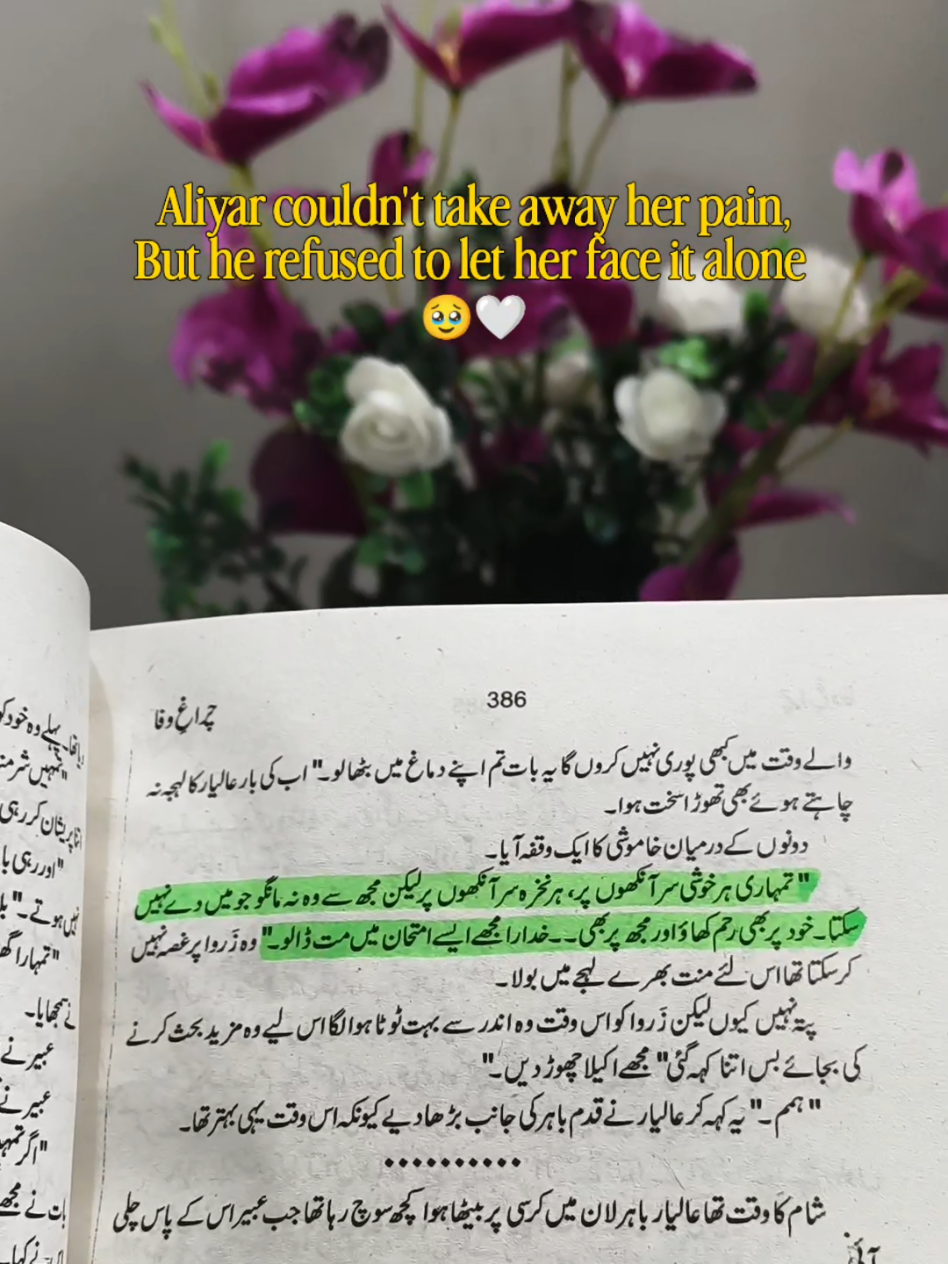 Aliyar couldn't take away her pain,
But he refused to let her face it alone
🥹🤍
386
چراغِ وفا
والے وقت میں کبھی پوری نہیں کروں گا یہ بات تم اپنے دماغ میں بٹھا لو۔" اب کی بار عالیار کا لہجہ نہ
چاہتے ہوئے بھی تھوڑا سخت ہوا۔
دونوں کے درمیان خاموشی کا ایک وقفہ آیا۔
"تمہاری ہر خوشی سر آنکھوں پر، ہر نخرہ سر آنکھوں پر لیکن مجھ سے وہ نہ مانگو جو میں دے نہیں
سکتا۔ خود پر بھی رحم کھاؤ اور مجھ پر بھی۔۔خدارا مجھے ایسے امتحان میں مت ڈالو۔" وہ زَروا پر غصہ نہیں
کر سکتا تھا اس لئے منت بھرے لہجے میں بولا۔
پتہ نہیں کیوں لیکن زَروا کو اس وقت وہ اندر سے بہت ٹوٹا ہوا لگا اس لیے وہ مزید بحث کرنے
کی بجائے بس اتنا کہہ گئی" مجھے اکیلا چھوڑ دیں۔"
"ہمم۔" یہ کہہ کر عالیار نے قدم باہر کی جانب بڑھا دیے کیونکہ اس وقت یہی بہتر تھا۔
••••••••••
شام کا وقت تھا عالیار باہر لان میں کرسی پر بیٹھا ہوا کچھ سوچ رہا تھا جب عبیر اس کے پاس چلی
آئی۔
پہلے وہ خود کو
"تمہیں شرمند
پریشان کر رہی
"اور رہی با
نہیں ہوتے۔"
"تمہارا گھ
نے سمجھایا۔
عبیر نے
عبیر نے
"اگر تمہی
بات نے مجھے
نے کہا۔